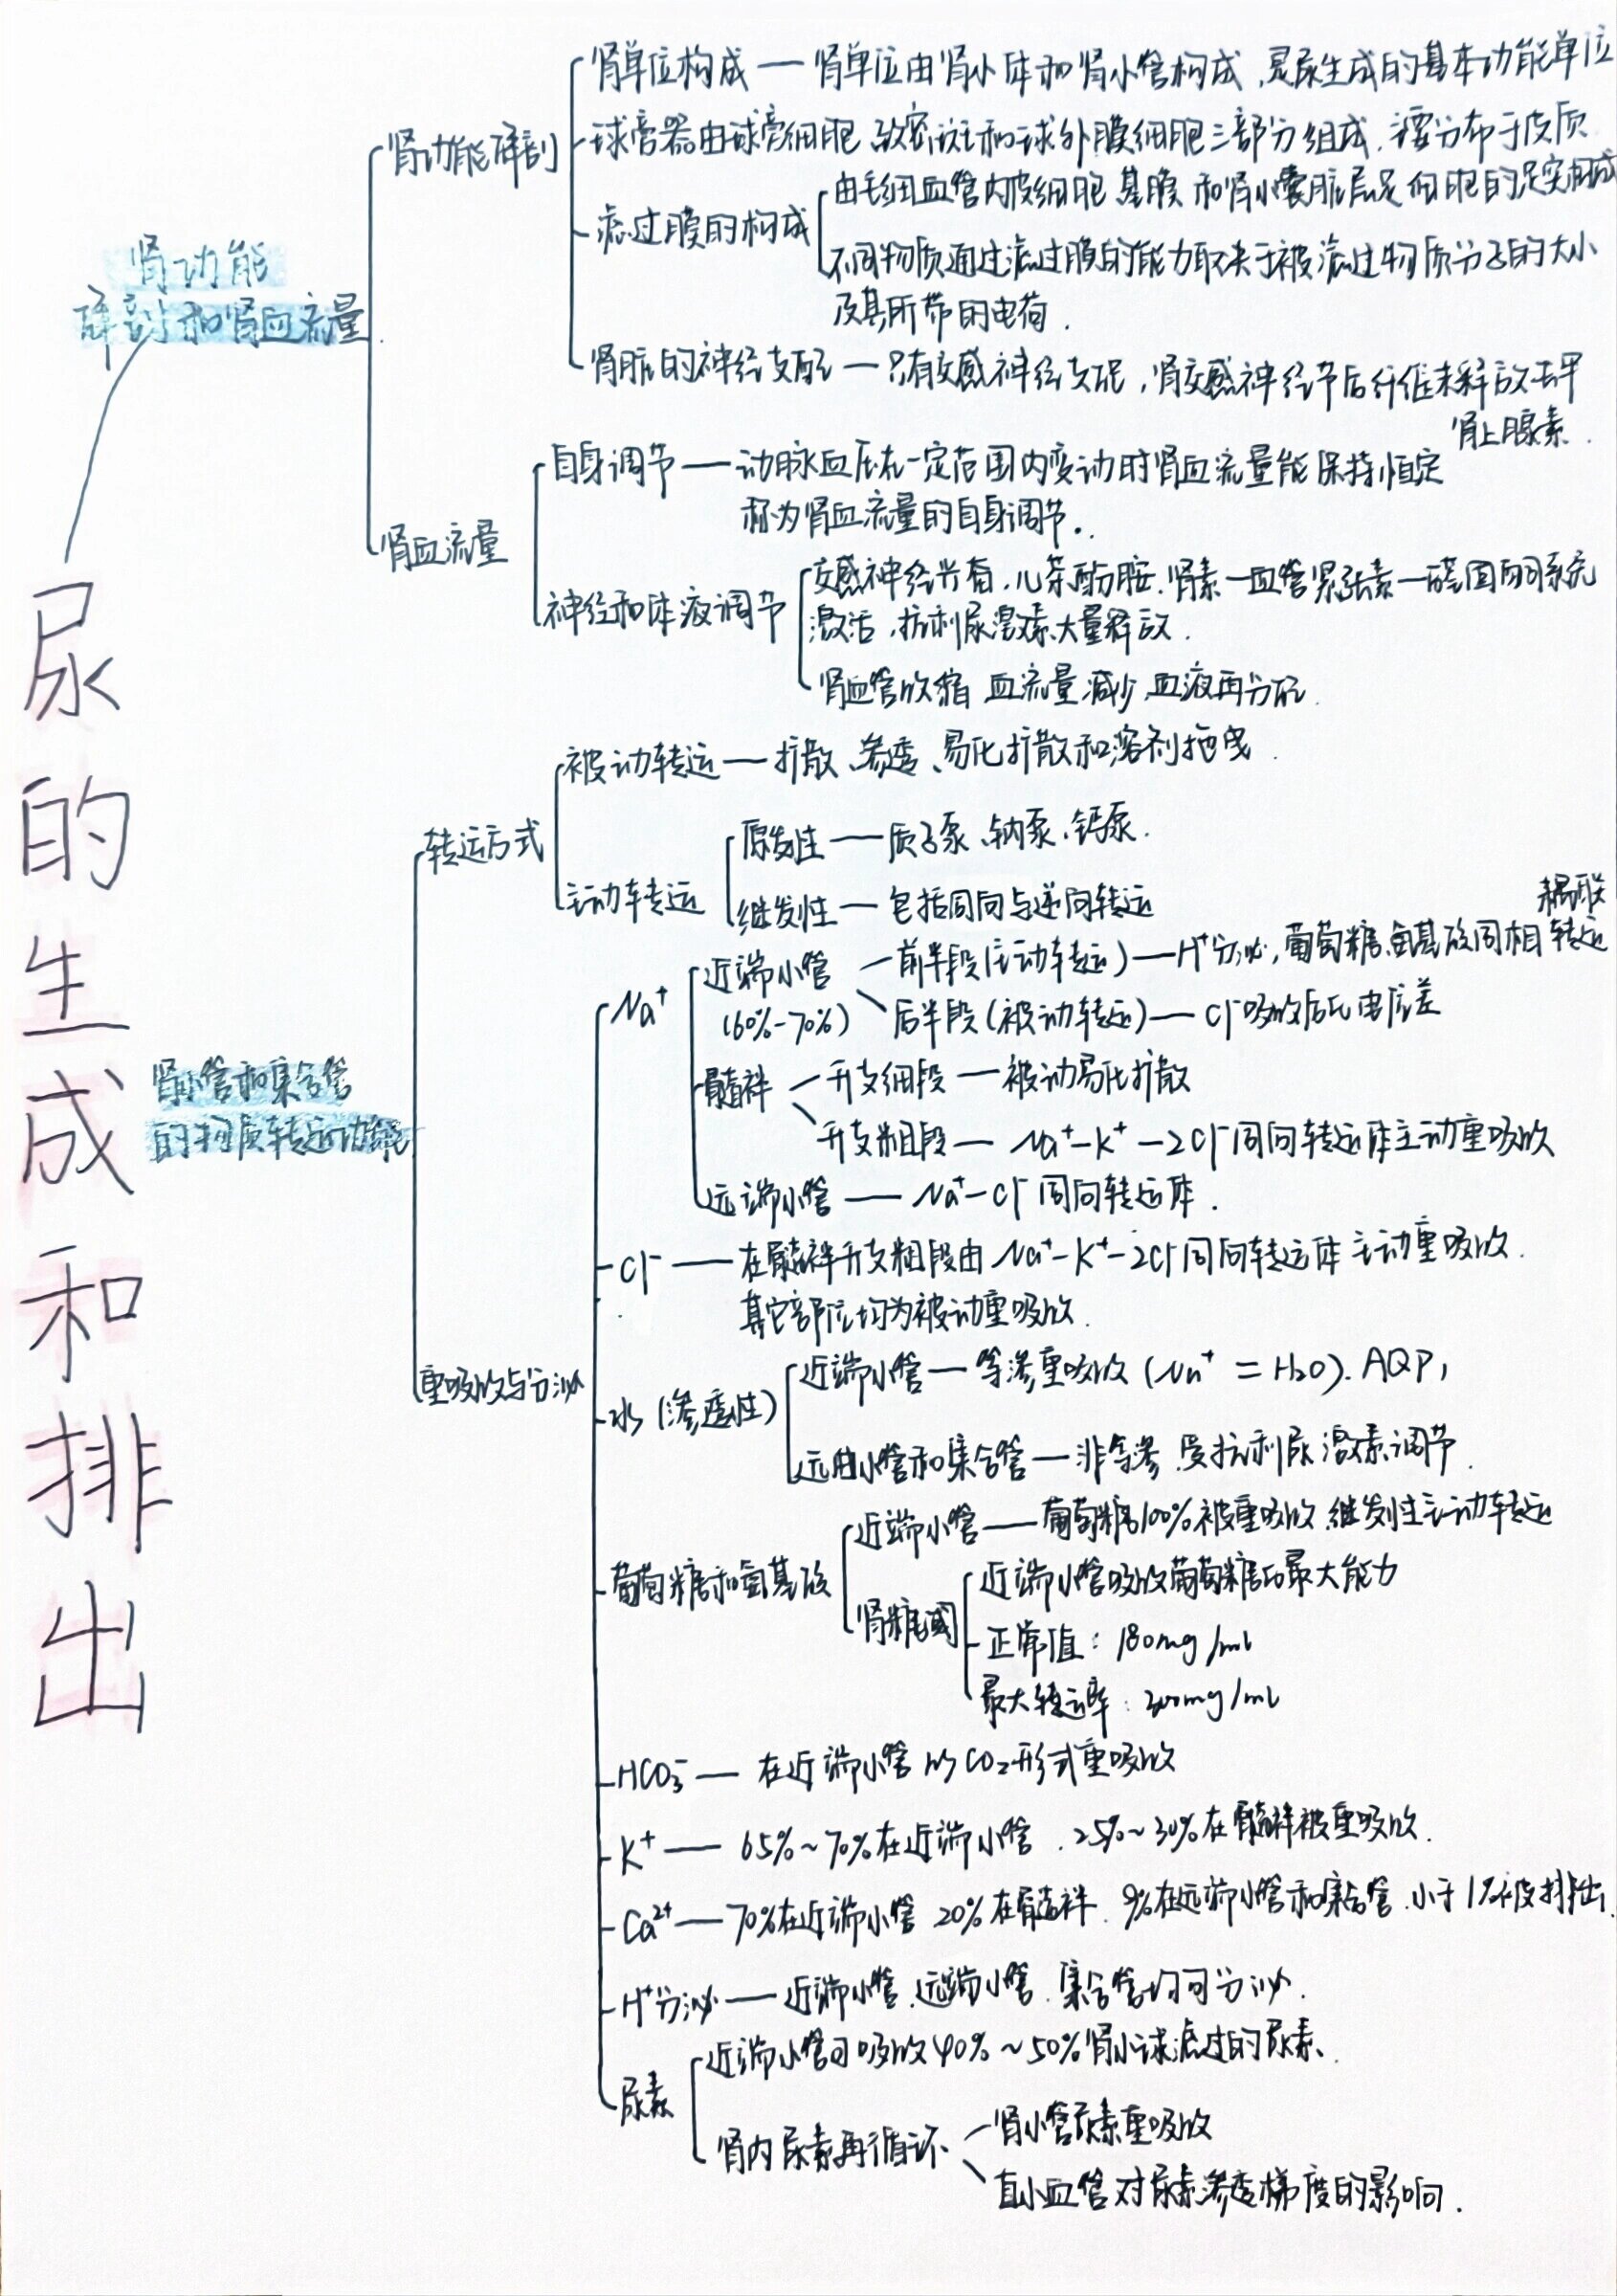 尿的生成和排出
肾功能
解剖和肾血流量
肾功能解剖
肾单位构成 — 肾单位由肾小体和肾小管构成,是尿生成的基本功能单位
球旁器由球旁细胞、致密斑和球外膜细胞三部分组成,主要分布于皮质
滤过膜的构成
由毛细血管内皮细胞、基膜和肾小囊脏层足细胞的足突构成
不同物质通过滤过膜的能力取决于被滤过物质分子的大小
及其所带的电荷.
肾脏的神经支配 — 只有交感神经支配,肾交感神经节后纤维末释放去甲
肾上腺素.
肾血流量
自身调节 — 动脉血压在一定范围内变动时肾血流量能保持恒定
称为肾血流量的自身调节.
神经和体液调节
交感神经兴奋,儿茶酚胺.肾素—血管紧张素—醛固酮系统
激活,抗利尿激素大量释放.
肾血管收缩 血流量减少,血液再分配.
肾小管和集合管
的物质转运功能
转运方式
被动转运 — 扩散、渗透、易化扩散和溶剂拖曳.
主动转运
原发性 — 质子泵、钠泵、钙泵.
继发性 — 包括同向与逆向转运
重吸收与分泌
Na⁺
近端小管
(60%-70%)
前半段(主动转运) — H⁺分泌,葡萄糖、氨基酸同相耦联转运
后半段(被动转运) — Cl⁻吸收后比电位差
髓袢
升支细段 — 被动易化扩散
升支粗段 — Na⁺-K⁺-2Cl⁻同向转运体主动重吸收
远端小管 — Na⁺-Cl⁻同向转运体.
Cl⁻ — 在髓袢升支粗段由Na⁺-K⁺-2Cl⁻同向转运体主动重吸收.
其它部位均为被动重吸收.
水(渗透性)
近端小管 — 等渗重吸收(Na⁺=H₂O). AQP₁
远曲小管和集合管 — 非等渗,受抗利尿激素调节.
葡萄糖和氨基酸
近端小管 — 葡萄糖100%被重吸收,继发性主动转运
肾糖阈
近端小管吸收葡萄糖的最大能力
正常值:180mg/ml
最大转运率:300mg/ml
HCO₃⁻ — 在近端小管以CO₂形式重吸收
K⁺ — 65%~70%在近端小管.25%~30%在髓袢被重吸收.
Ca²⁺ — 70%在近端小管 20%在髓袢.9%在远端小管和集合管.小于1%被排出.
H⁺分泌 — 近端小管.远端小管.集合管均可分泌.
尿素
近端小管可吸收40%~50%肾小球滤过的尿素.
肾内尿素再循环
肾小管尿素重吸收
直小血管对尿素渗透梯度的影响.